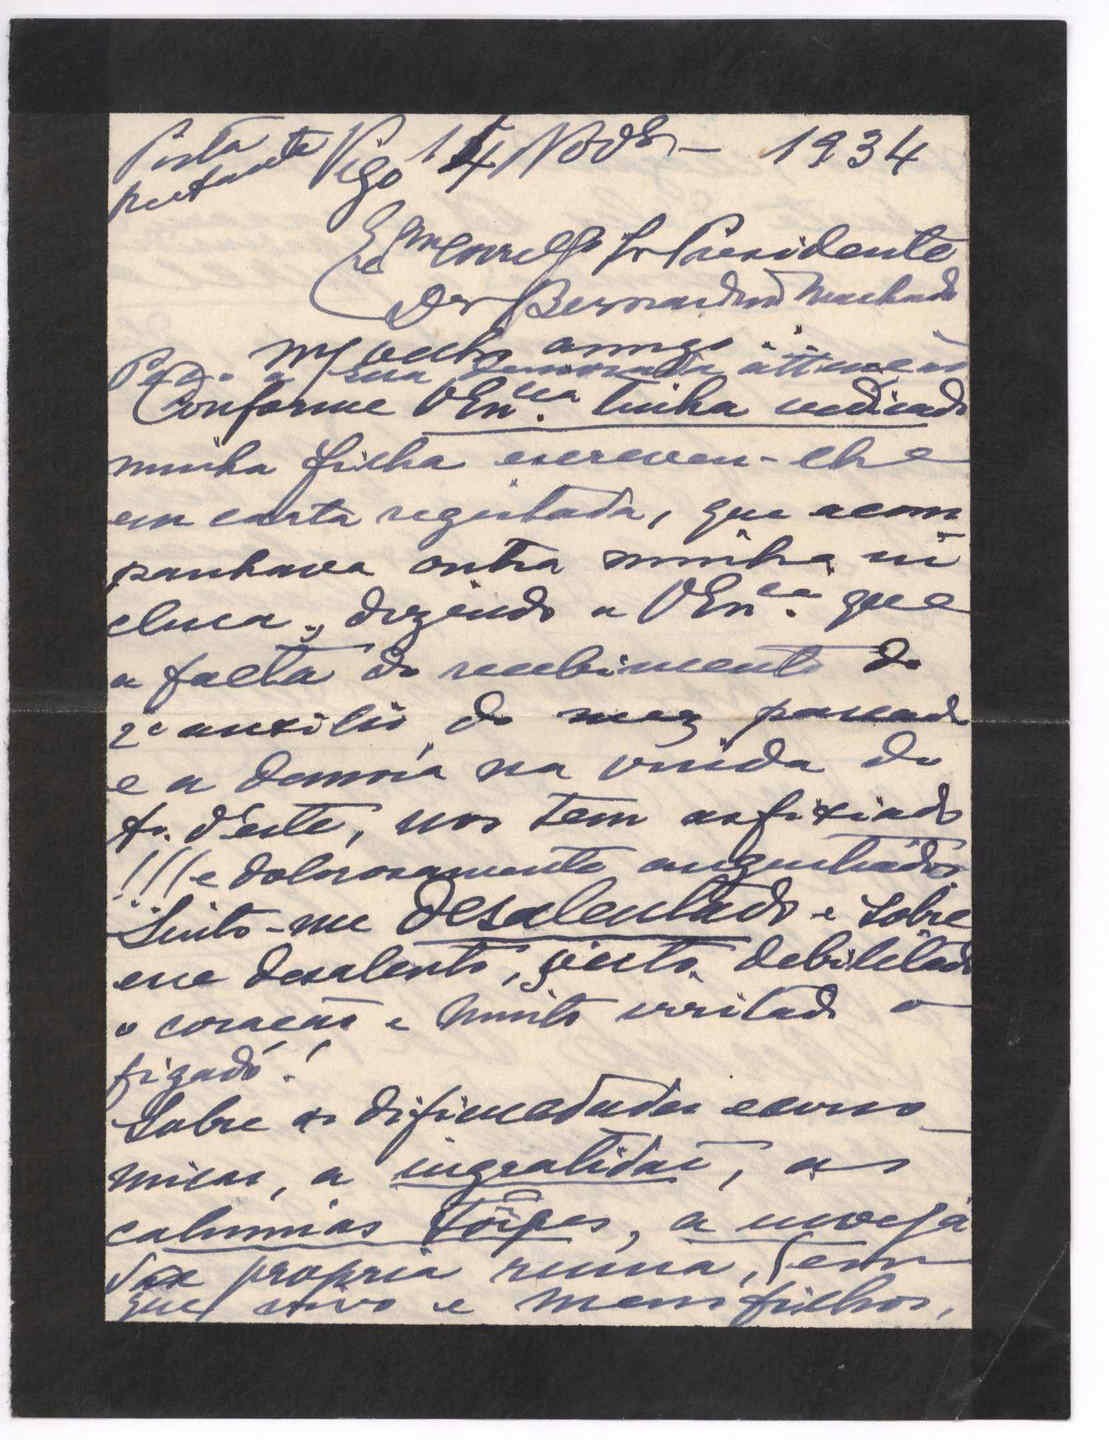 Posta
restante Vigo 14 Nov - 1934
Exmo Sr Presidente
Dr Bernardino Machado
Meu velho amigo:
Peço a sua demorada attenção
Conforme VExcia. tinha indicado
minha filha escreveu-lhe
em carta registada, que acom
panhava outra minha in
clusa, dizendo a VExcia. que
a falta do recebimento do
2º auxilio, do mez passado
e a demora na vinda do
1º. d'este, nos tem asfixiado
!!! e dolorosamente angustiado.
Sinto-me desalentado e sobre
esse desalento, sinto debilitado
o coração e muito irritado o
figado!
Sobre as dificuldades econo
micas, a ingratidão, as
calumnias tôrpes, a inveja
da propria ruina, em
que vivo e meus filhos,